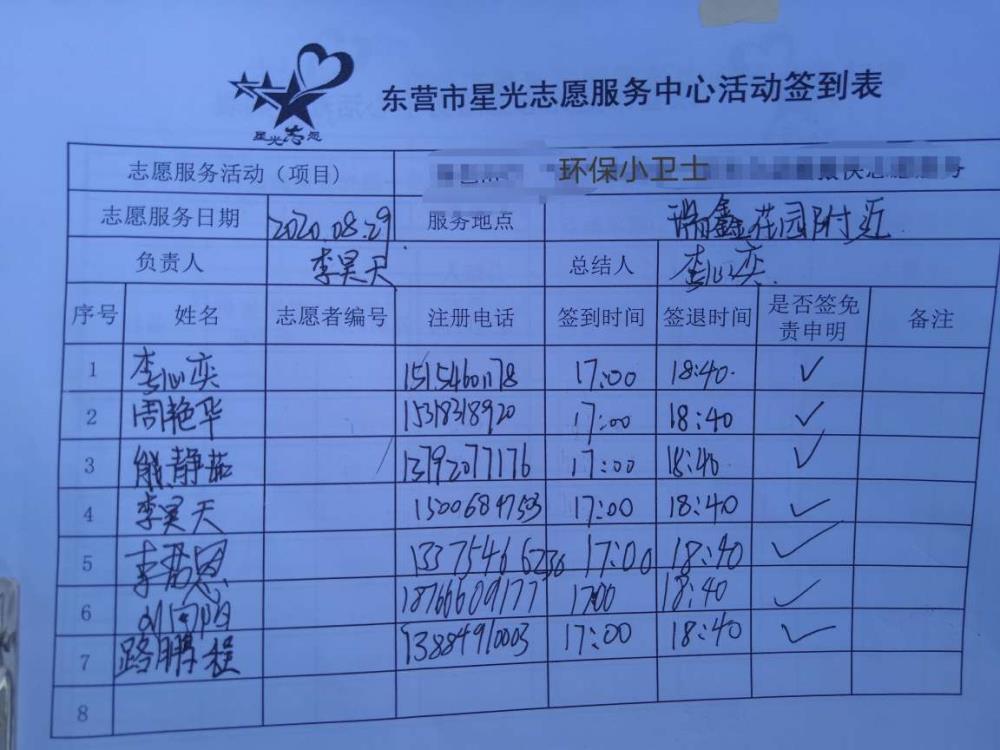 星光志愿
东营市星光志愿服务中心活动签到表
志愿服务活动（项目） 环保小卫士
志愿服务日期 2020.08.29 服务地点 瑞鑫花园附近
负责人 李昊天 总结人 李心奕
序号 姓名 志愿者编号 注册电话 签到时间 签退时间 是否签免责申明 备注
1 李心奕 15154601178 17:00 18:40 ✓
2 周艳华 15318318920 17:00 18:40 ✓
3 熊静茹 13792077176 17:00 18:40 ✓
4 李昊天 1500684753 17:00 18:40 ✓
5 李君恩 13375466236 17:00 18:40 ✓
6 刘向阳 18766609177 17:00 18:40 ✓
7 路鹏程 13884910003 17:00 18:40 ✓
8